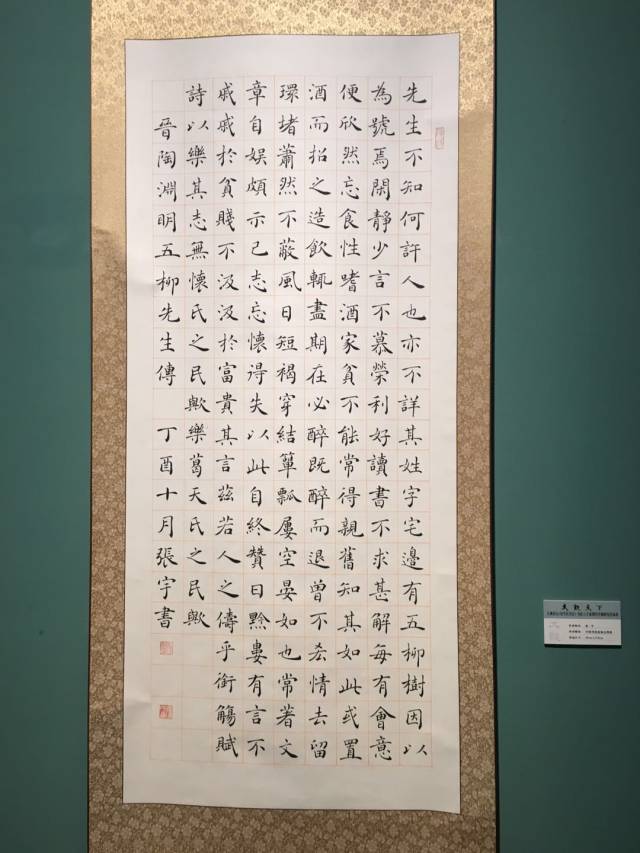 先生不知何許人也亦不詳其姓字宅邊有五柳樹因以
為號焉閑靜少言不慕榮利好讀書不求甚解每有會意
便欣然忘食性嗜酒家貧不能常得親舊知其如此或置
酒而招之造飲輒盡期在必醉既醉而退曾不吝情去留
環堵蕭然不蔽風日短褐穿結簞瓢屢空晏如也常著文
章自娛頗示己志忘懷得失以此自終贊曰黔婁有言不
戚戚於貧賤不汲汲於富貴其言茲若人之儔乎銜觴賦
詩以樂其志無懷氏之民歟樂葛天氏之民歟
晉陶淵明五柳先生傳 丁酉十月張宇書